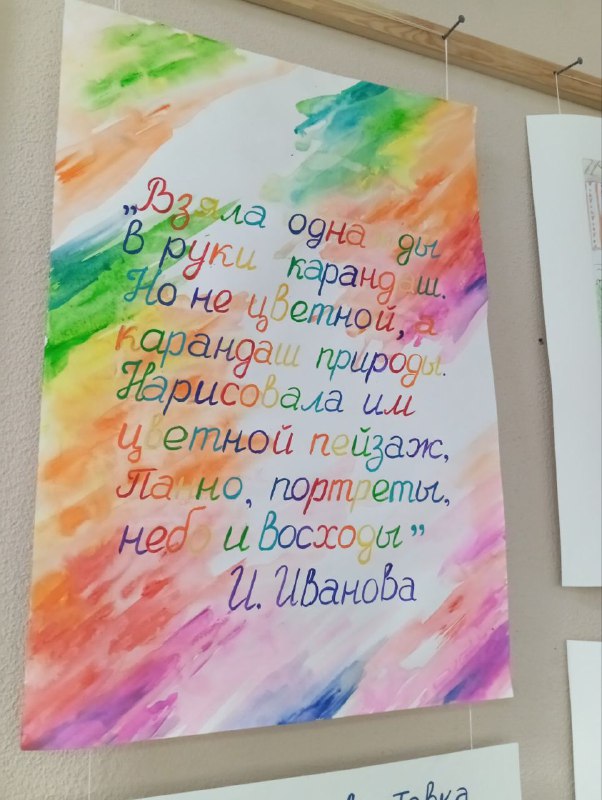 „Взяла однажды
в руки карандаш.
Но не цветной, а
карандаш природы.
Нарисовала им
цветной пейзаж,
Панно, портреты,
небо и восходы”
И. Иванова